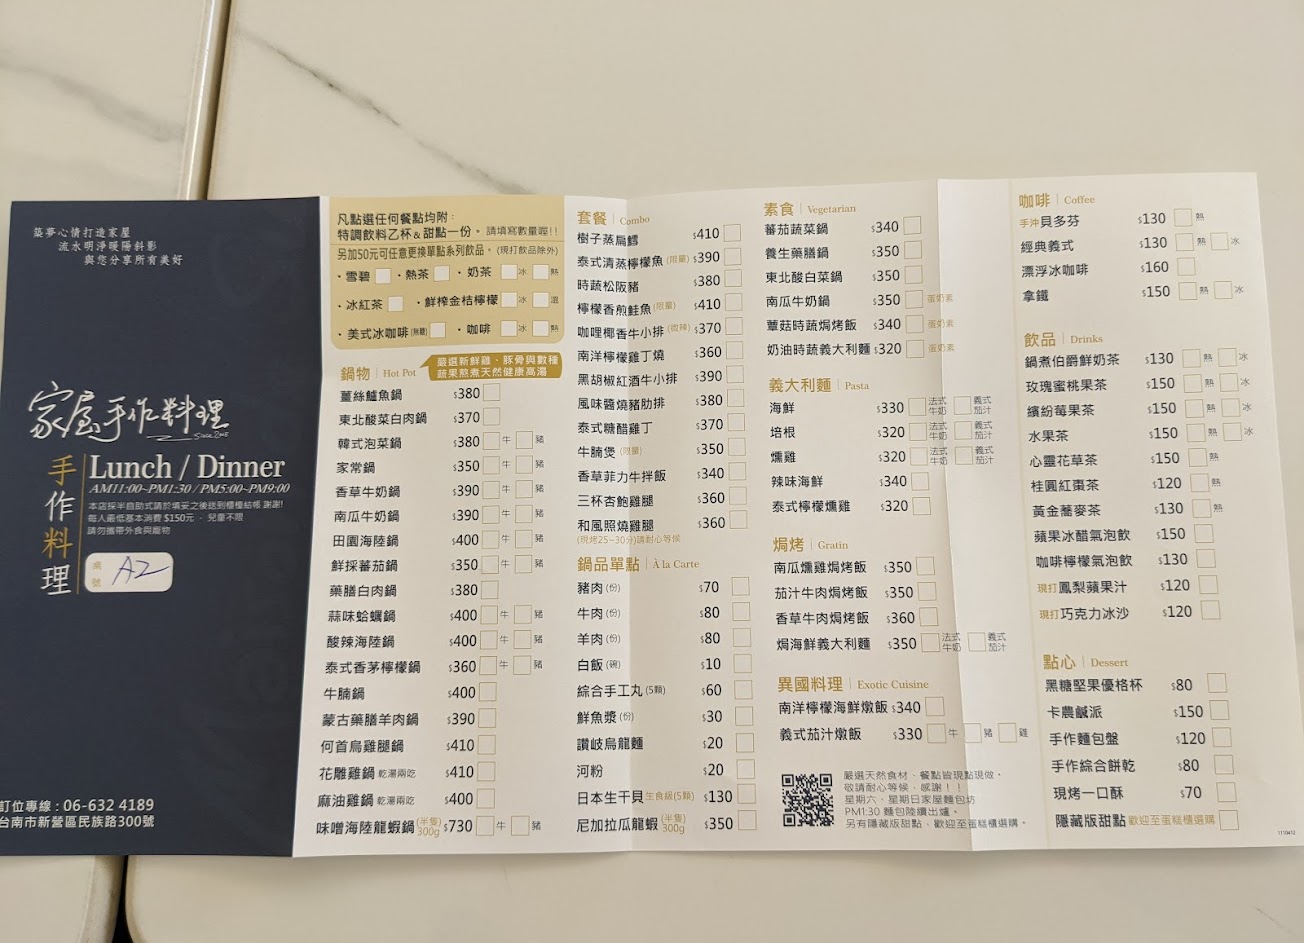 築夢心情打造家屋
流水明淨暖陽斜影
與您分享所有美好
家屋手作料理
手作料理
Lunch / Dinner
AM11:00~PM1:30 / PM5:00~PM9:00
本店採半自助式請於填妥之後送到櫃檯結帳 謝謝!
每人最低基本消費 $150元 - 兒童不限
請勿攜帶外食與寵物
桌號 A2
訂位專線:06-632 4189
台南市新營區民族路300號
凡點選任何餐點均附:
特調飲料乙杯&甜點一份。請填寫數量喔!!
另加50元可任意更換單點系列飲品。(現打飲品除外)
・雪碧 ・熱茶 ・奶茶 冰 熱
・冰紅茶 ・鮮榨金桔檸檬 冰 溫
・美式冰咖啡(無糖) ・咖啡 冰 熱
鍋物 Hot Pot
嚴選新鮮雞、豚骨與數種
蔬果熬煮天然健康高湯
薑絲鱸魚鍋 $380
東北酸菜白肉鍋 $370
韓式泡菜鍋 $380 牛 豬
家常鍋 $350 牛 豬
香草牛奶鍋 $390 牛 豬
南瓜牛奶鍋 $390 牛 豬
田園海陸鍋 $400 牛 豬
鮮採蕃茄鍋 $350 牛 豬
藥膳白肉鍋 $380
蒜味蛤蠣鍋 $400 牛 豬
酸辣海陸鍋 $400 牛 豬
泰式香茅檸檬鍋 $360 牛 豬
牛腩鍋 $400
蒙古藥膳羊肉鍋 $390
何首烏雞腿鍋 $410
花雕雞鍋 乾湯兩吃 $410
麻油雞鍋 乾湯兩吃 $400
味噌海陸龍蝦鍋 (半隻)300g $730 牛 豬
套餐 Combo
樹子蒸扁鱈 $410
泰式清蒸檸檬魚 (限量) $390
時蔬松阪豬 $380
檸檬香煎鮭魚 (限量) $410
咖哩椰香牛小排 (微辣) $370
南洋檸檬雞丁燒 $360
黑胡椒紅酒牛小排 $390
風味醬燒豬肋排 $380
泰式糖醋雞丁 $370
牛腩煲 (限量) $350
香草菲力牛拌飯 $340
三杯杏鮑雞腿 $360
和風照燒雞腿 $360
(現烤25~30分)請耐心等候
鍋品單點 À la Carte
豬肉 (份) $70
牛肉 (份) $80
羊肉 (份) $80
白飯 (碗) $10
綜合手工丸 (5顆) $60
鮮魚漿 (份) $30
讚岐烏龍麵 $20
河粉 $20
日本生干貝 生食級(5顆) $130
尼加拉瓜龍蝦 (半隻)300g $350
素食 Vegetarian
蕃茄蔬菜鍋 $340
養生藥膳鍋 $350
東北酸白菜鍋 $350
南瓜牛奶鍋 $350 蛋奶素
蕈菇時蔬焗烤飯 $340 蛋奶素
奶油時蔬義大利麵 $320 蛋奶素
義大利麵 Pasta
海鮮 $330 法式牛奶 義式茄汁
培根 $320 法式牛奶 義式茄汁
燻雞 $320 法式牛奶 義式茄汁
辣味海鮮 $340
泰式檸檬燻雞 $320
焗烤 Gratin
南瓜燻雞焗烤飯 $350
茄汁牛肉焗烤飯 $350
香草牛肉焗烤飯 $360
焗海鮮義大利麵 $350 法式牛奶 義式茄汁
異國料理 Exotic Cuisine
南洋檸檬海鮮燉飯 $340
義式茄汁燉飯 $330 牛 豬 雞
嚴選天然食材、餐點皆現點現做。
敬請耐心等候、感謝!!
星期六、星期日家屋麵包坊
PM1:30 麵包陸續出爐。
另有隱藏版甜點、歡迎至蛋糕櫃選購。
咖啡 Coffee
手沖 貝多芬 $130 熱
經典義式 $130 熱 冰
漂浮冰咖啡 $160
拿鐵 $150 熱 冰
飲品 Drinks
鍋煮伯爵鮮奶茶 $130 熱 冰
玫瑰蜜桃果茶 $150 熱 冰
繽紛莓果茶 $150 熱 冰
水果茶 $150 熱 冰
心靈花草茶 $150 熱
桂圓紅棗茶 $120 熱
黃金蕎麥茶 $130 熱
蘋果冰醋氣泡飲 $150
咖啡檸檬氣泡飲 $130
現打 鳳梨蘋果汁 $120
現打 巧克力冰沙 $120
點心 Dessert
黑糖堅果優格杯 $80
卡農鹹派 $150
手作麵包盤 $120
手作綜合餅乾 $80
現烤一口酥 $70
隱藏版甜點 歡迎至蛋糕櫃選購
1110412